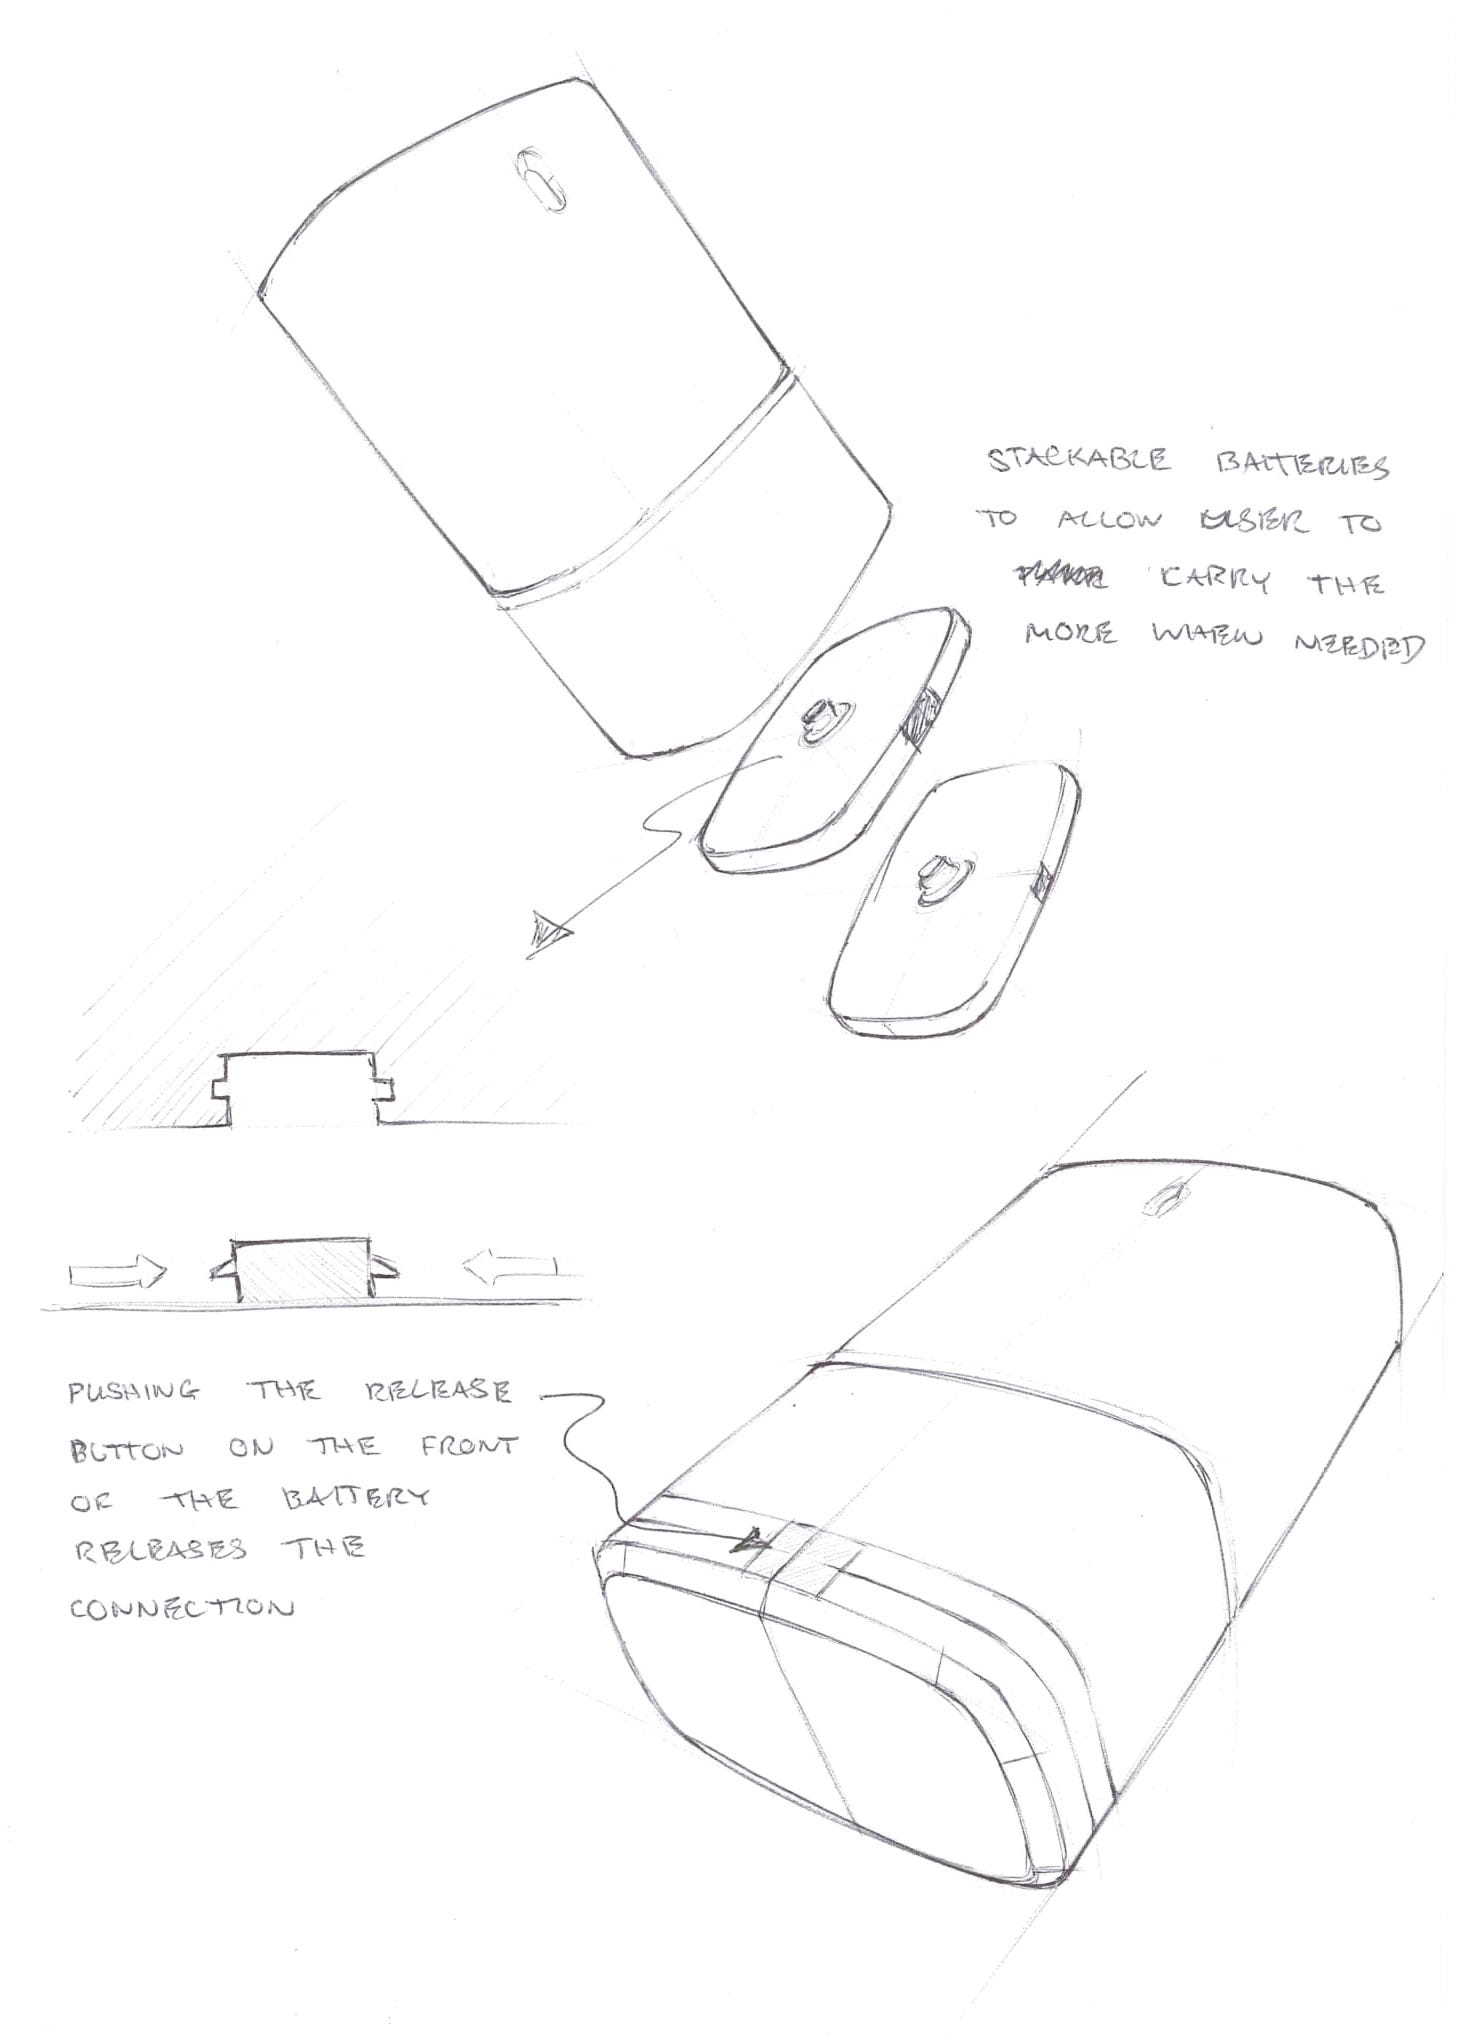 STACKABLE BATTERIES
TO ALLOW USER TO
CARRY THE
MORE WHEN NEEDED
PUSHING THE RELEASE
BUTTON ON THE FRONT
OF THE BATTERY
RELEASES THE
CONNECTION